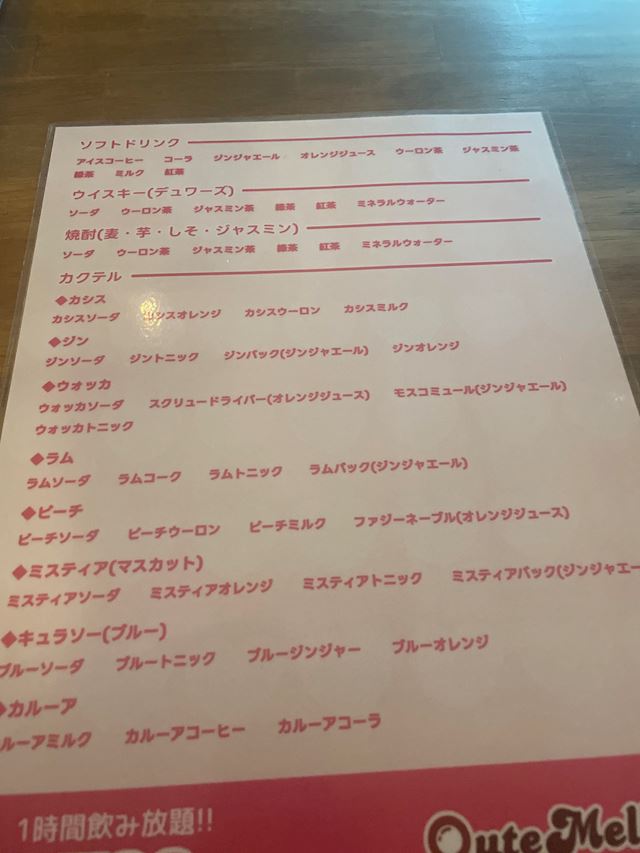 ソフトドリンク
アイスコーヒー　コーラ　ジンジャエール　オレンジジュース　ウーロン茶　ジャスミン茶
緑茶　ミルク　紅茶
ウイスキー(デュワーズ)
ソーダ　ウーロン茶　ジャスミン茶　緑茶　紅茶　ミネラルウォーター
焼酎(麦・芋・しそ・ジャスミン)
ソーダ　ウーロン茶　ジャスミン茶　緑茶　紅茶　ミネラルウォーター
カクテル
◆カシス
カシスソーダ　カシスオレンジ　カシスウーロン　カシスミルク
◆ジン
ジンソーダ　ジントニック　ジンバック(ジンジャエール)　ジンオレンジ
◆ウォッカ
ウォッカソーダ　スクリュードライバー(オレンジジュース)　モスコミュール(ジンジャエール)
ウォッカトニック
◆ラム
ラムソーダ　ラムコーク　ラムトニック　ラムバック(ジンジャエール)
◆ピーチ
ピーチソーダ　ピーチウーロン　ピーチミルク　ファジーネーブル(オレンジジュース)
◆ミスティア(マスカット)
ミスティアソーダ　ミスティアオレンジ　ミスティアトニック　ミスティアバック(ジンジャエー
◆キュラソー(ブルー)
ブルーソーダ　ブルートニック　ブルージンジャー　ブルーオレンジ
◆カルーア
ルーアミルク　カルーアコーヒー　カルーアコーラ
1時間飲み放題!!
Qute Mel